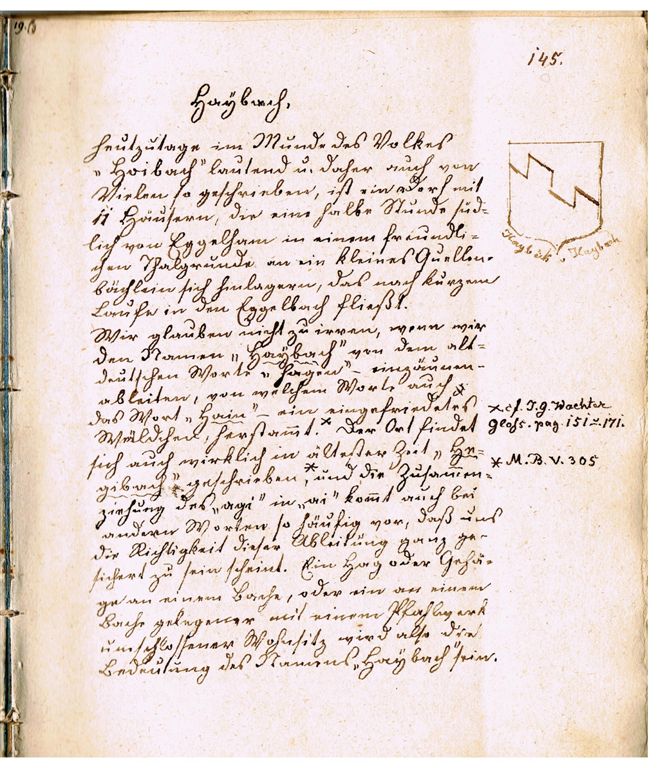 145.
Haÿbach,
heutzutage im Munde des Volkes
„Hoibach" lautend u. daher auch von
Vielen so geschrieben, ist ein Dorf mit
11 Häusern, die eine halbe Stunde süd-
lich von Eggelham in einem freundli-
chen Thalgrunde an ein kleines Quellen-
bächlein sich hinlagern, das nach kurzem
Laufe in den Eggelbach fließt.
Wir glauben nicht zu irren, wenn wir
den Namen „Haÿbach" von dem alt-
deutschen Worte „hagen" – einzäunen –
ableiten, von welchem Worte auch
das Wort „Hain" – ein eingefriedetes
Wäldchen, herstammt.× Der Ort findet
sich auch wirklich in ältester Zeit „He-
gibach" geschrieben,* und die Zusammen-
ziehung des „agi" in „ai" kommt auch bei
andern Worten so häufig vor, daß uns
die Richtigkeit dieser Ableitung ganz ge-
sichert zu sein scheint. Ein Hag oder Gehä-
ge an einem Bache, oder ein an einem
Bache gelegener mit einem Pfahlwerk
umschlossener Wohnsitz wird also die
Bedeutung des Namens „Haÿbach" sein.
Haybeck v. Haybach
× cf. J. g. Wachter
Gloss. pag. 151 171.
* M. B. V. 305